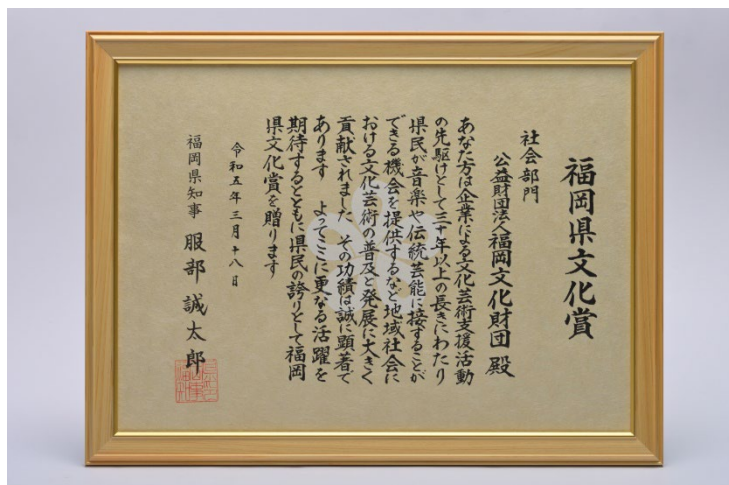 福岡県文化賞
社会部門
公益財団法人福岡文化財団 殿
あなた方は企業による文化芸術支援活動
の先駆けとして三十年以上の長きにわたり
県民が音楽や伝統芸能に接することが
できる機会を提供するなど地域社会に
おける文化芸術の普及と発展に大きく
貢献されました その功績は誠に顕著で
あります よってここに更なる活躍を
期待するとともに県民の誇りとして福岡
県文化賞を贈ります
令和五年三月十八日
福岡県知事 服部誠太郎